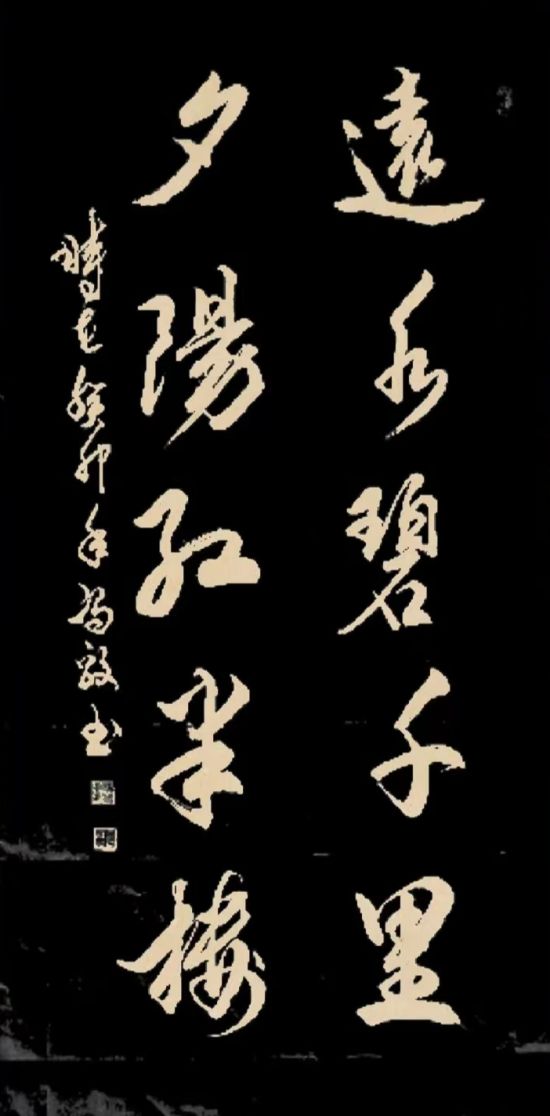 遠水碧千里
夕陽紅半樓
時在癸卯年馮敏書